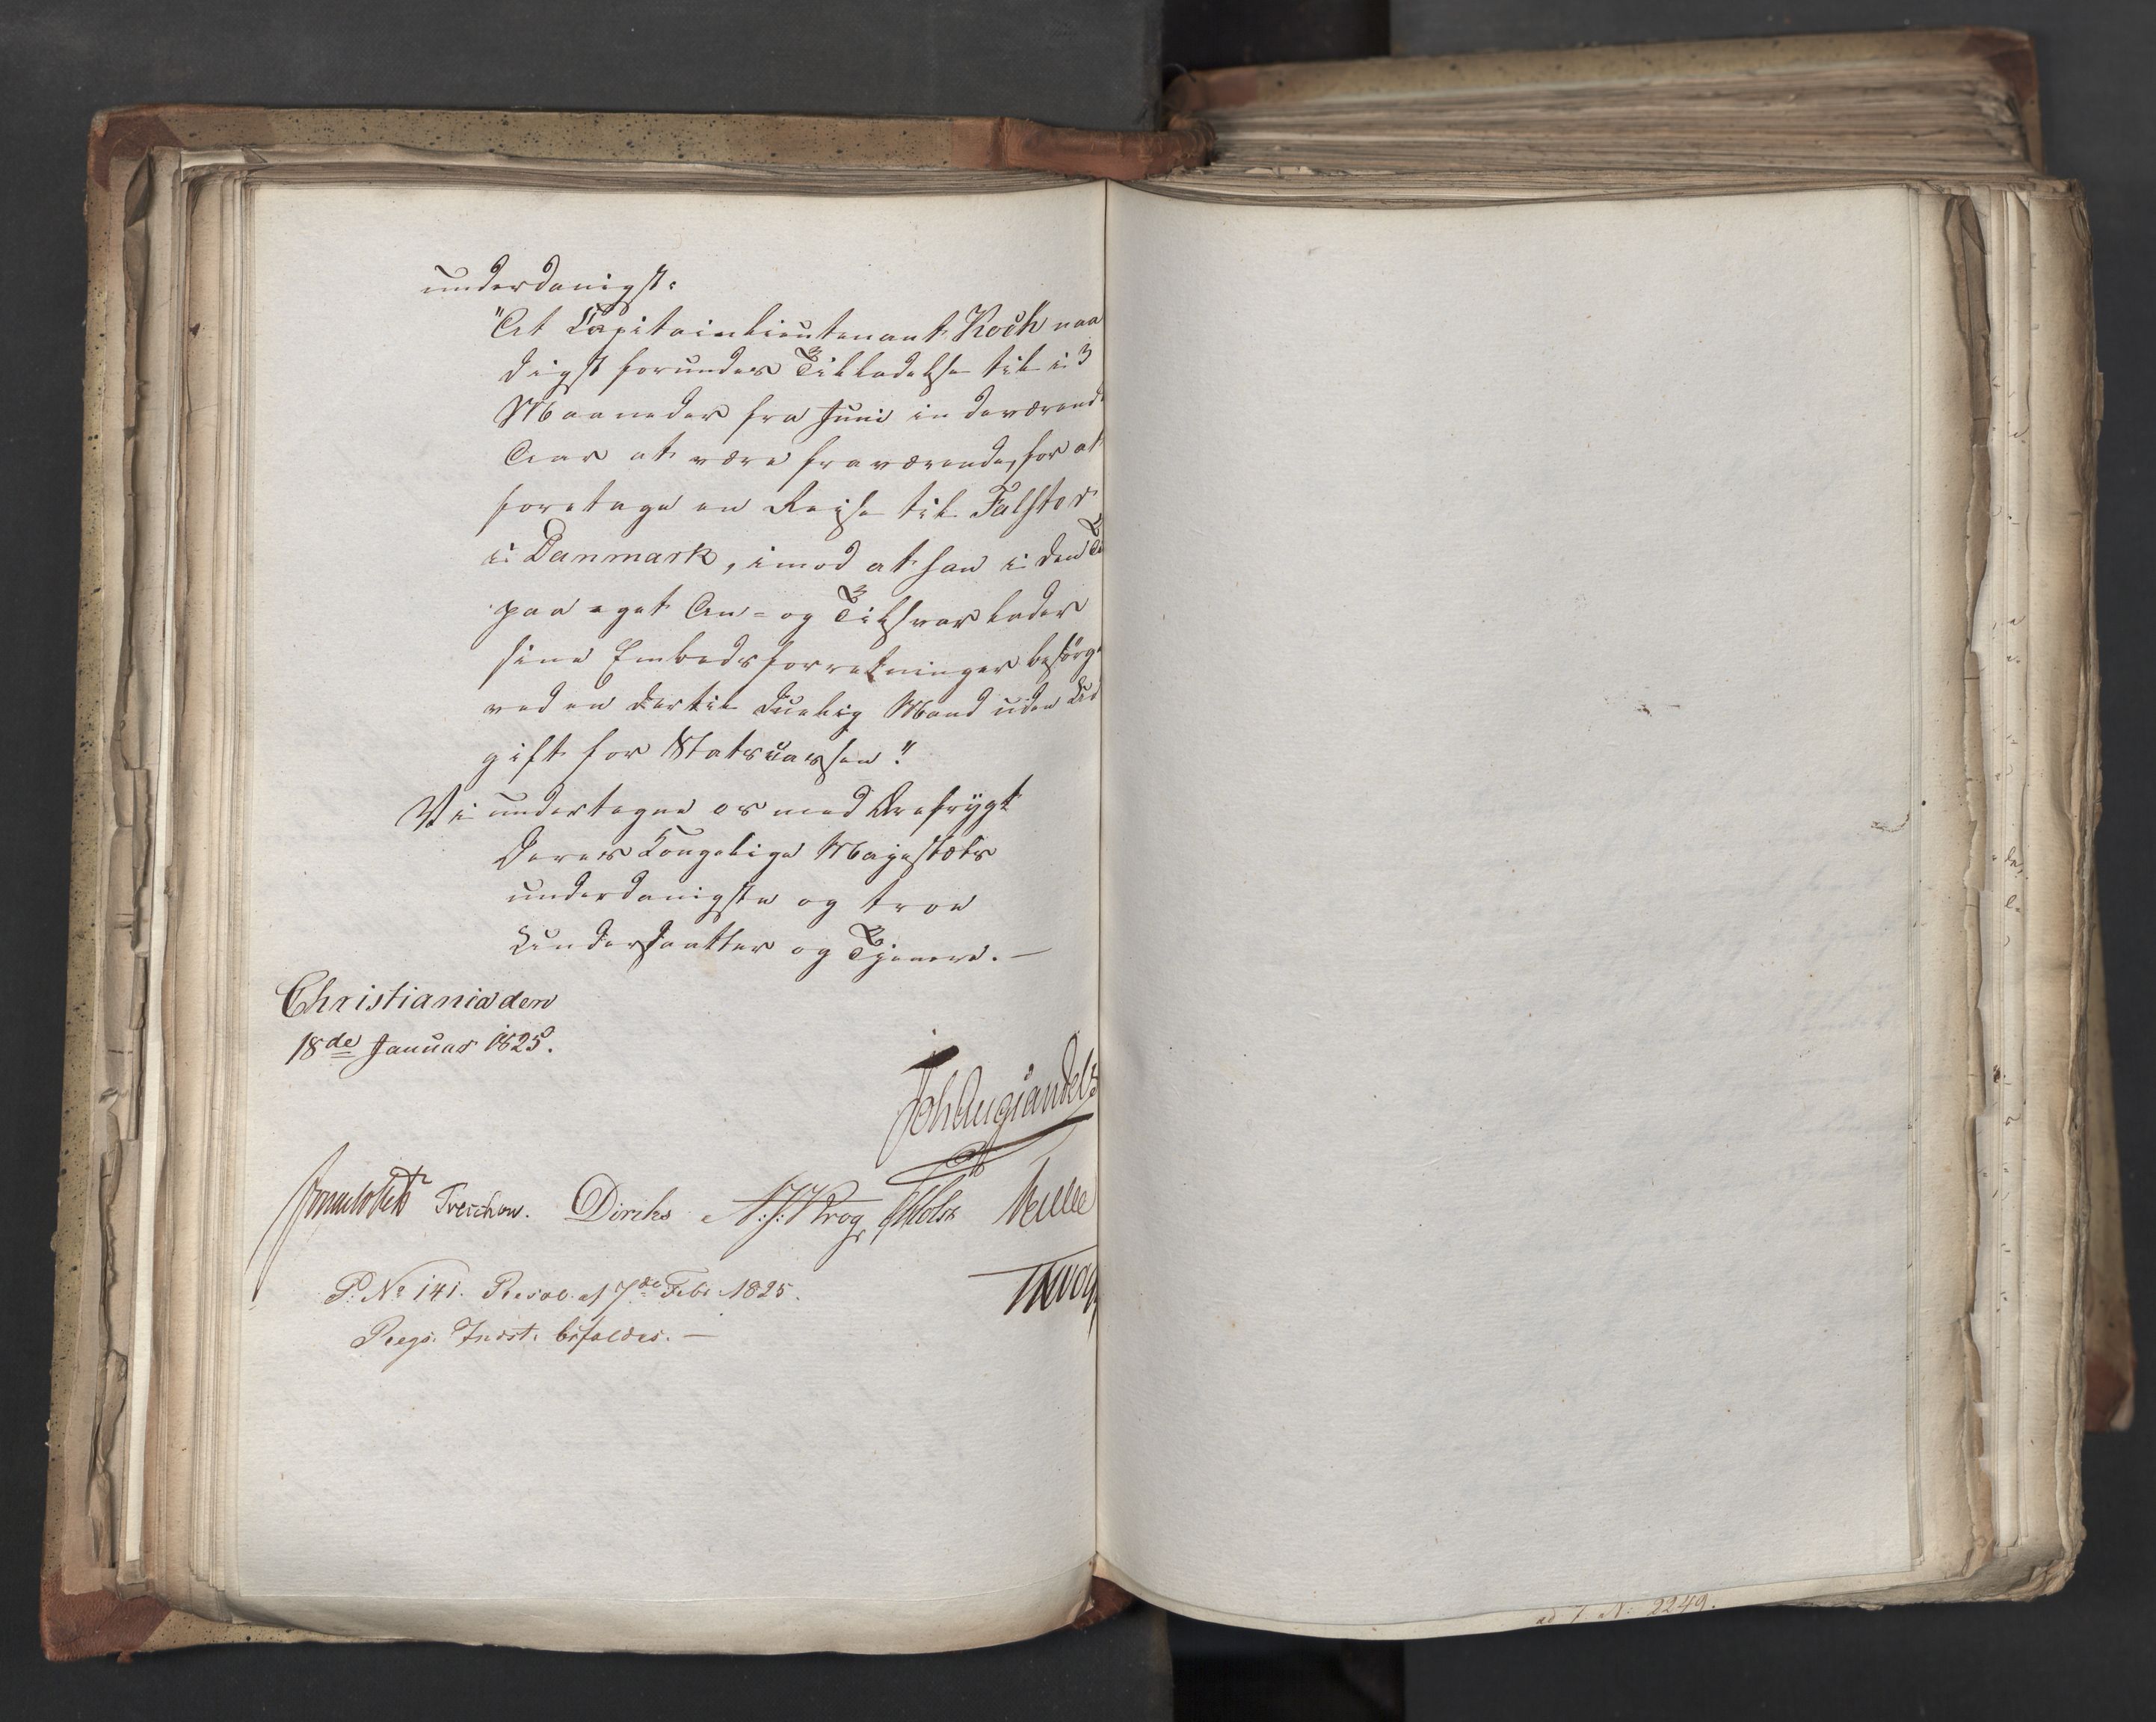 underdanigst:
"At Capitainlieutenant Koch naa
digst forundes Tilladelse til i 3
Maaneder fra Juni indeværende
Aar at være fraværende, for at
foretage en Reise til Falster
i Danmark, imod at han i den Ti
paa eget An- og Tilsvar lader
sine Embedsforretninger besörge
ved en dertil duelig Mand uden Ud
gift for Statscassen."
Vi undertegne os med Ærefrygt
Deres Kongelige Majestæts
underdanigste og troe
Undersaatter og Tjenere. —
Christiania den
18de Januar 1825.
Joh Aug Sandels
Treschow. Diriks N: J: Krog JHolst
P: No 141. Resol. af 7de Febr 1825.
Regs. Indst. bifaldes. —
ad J. N: 2249.